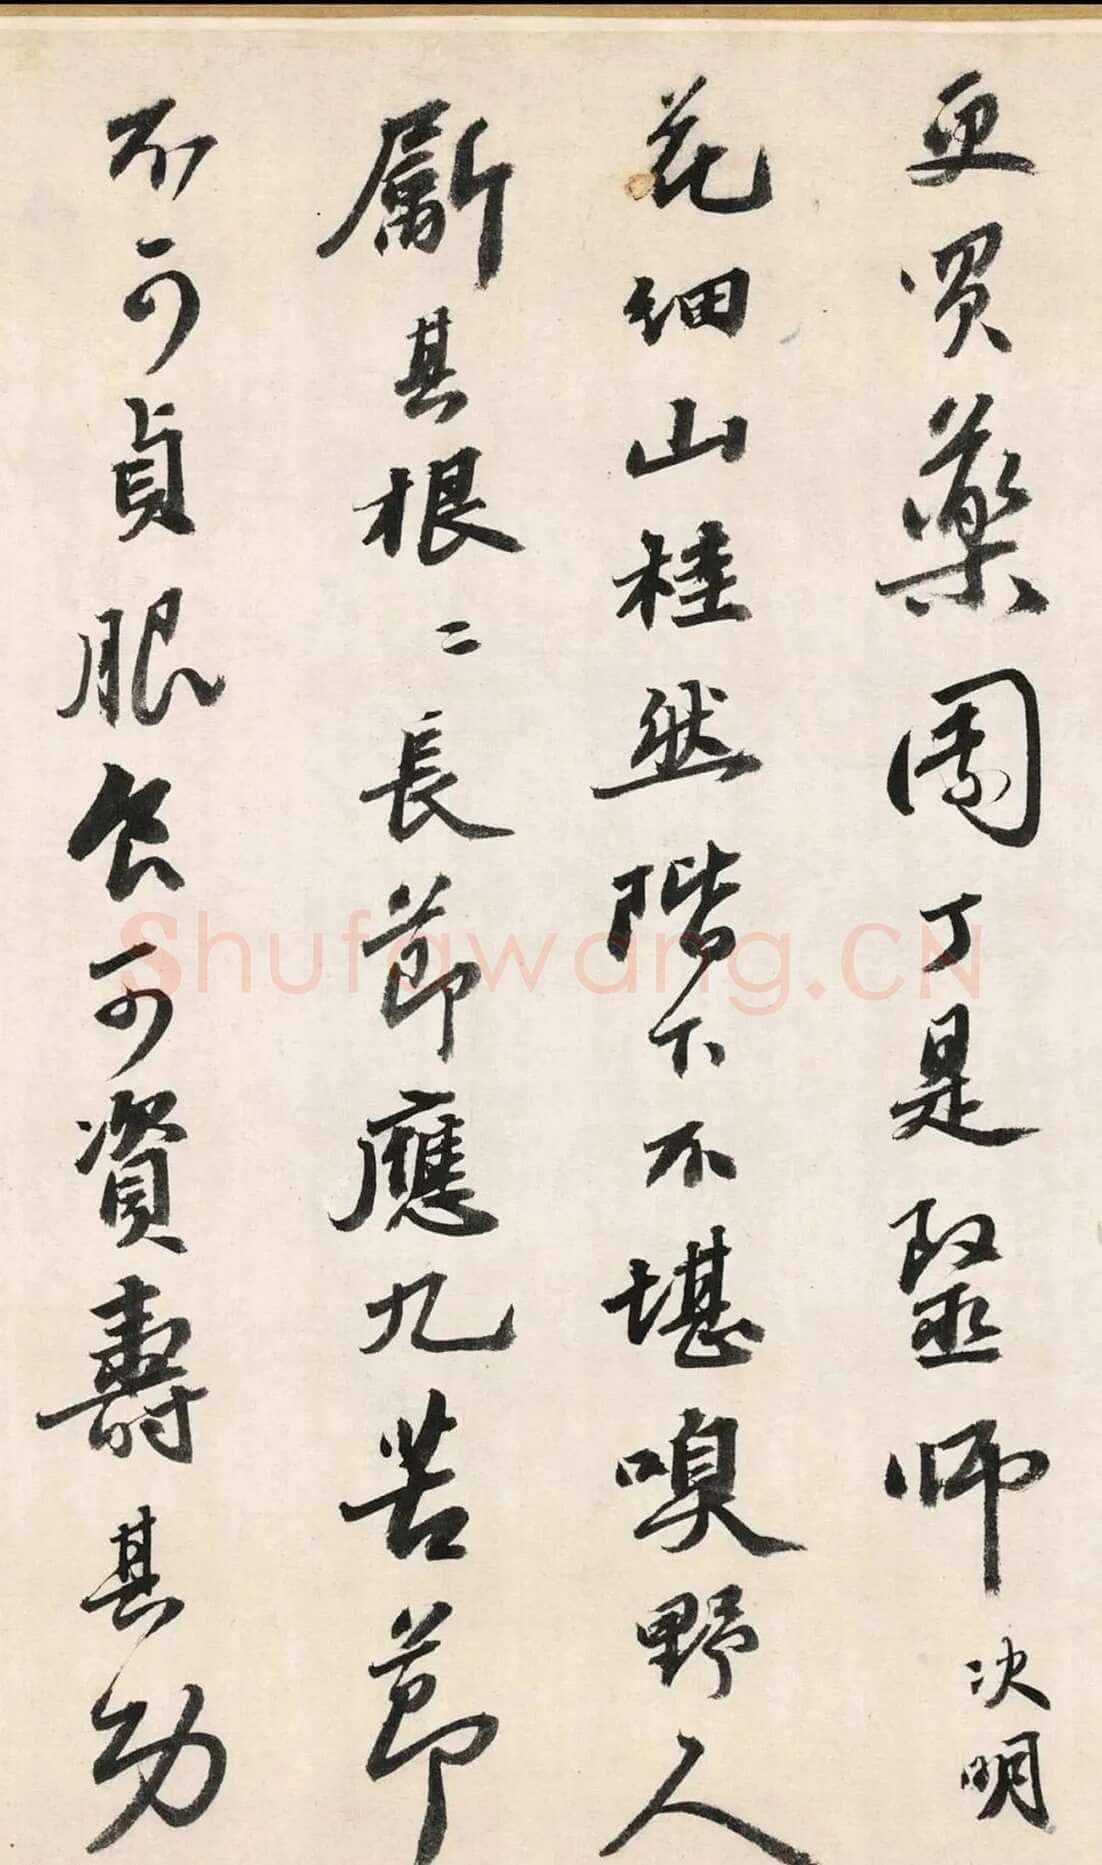 更買藥園丁是毉師 决明
花細山桂然階下不堪嗅野人
斸其根〻長節應九苦節
不可貞服食可資壽其功
Shufawang.CN